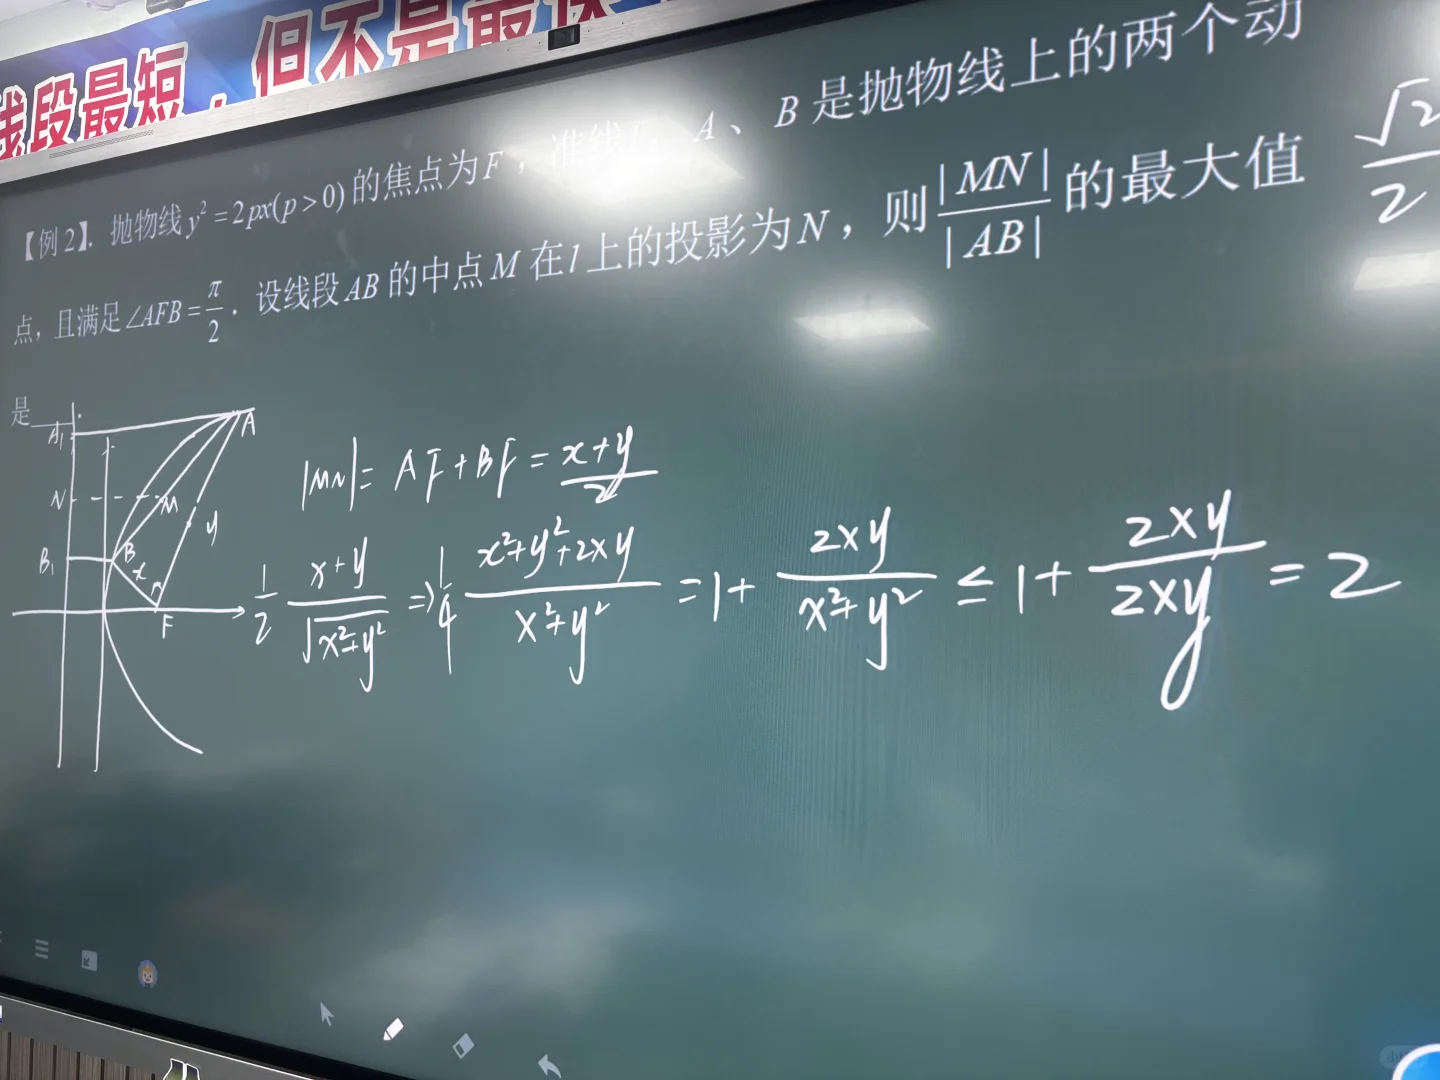 线段最短，但不是最快
【例2】. 抛物线 y² = 2px(p > 0) 的焦点为 F ，准线 l ，A 、 B 是抛物线上的两个动
点，且满足∠AFB = π/2 . 设线段 AB 的中点 M 在 l 上的投影为 N ，则 |MN|/|AB| 的最大值 √2/2
是
A₁ A
N M y
B₁ B x
F
|MN| = AF + BF = (x+y)/2
1/2 (x+y)/√(x²+y²) ⇒ 1/4 (x²+y²+2xy)/(x²+y²) = 1 + 2xy/(x²+y²) ≤ 1 + 2xy/2xy = 2